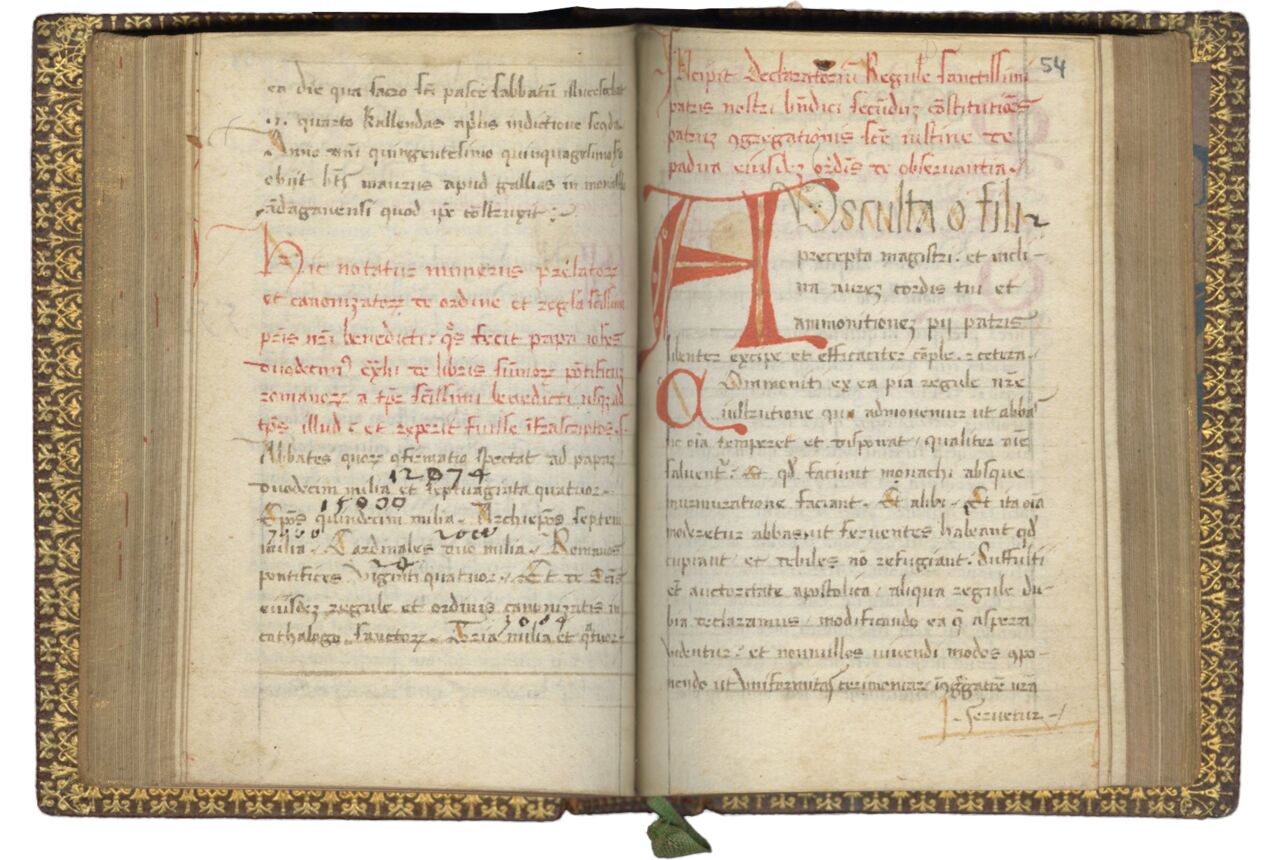 ea die qua sacro scī pascē sabbatū illucescebat
.i. quarto kallendas aplīs indictione secda
Anno dnī quingentesimo quinquagesimo
obijt bts maurus apud gallias in
ādaganensi quod ipe cōstruxit :
Hic notatur numerus prelatorꝝ
et canonizatorꝝ de ordine et regla scissimi
pris nri benedicti: qs fecit papa iohes
duodecimꝰ exhi de libris sūmorꝝ pōtificuꝫ
romanorꝝ a tpr scissimi benedicti usqꝫ ad
tps illud et reperit fuisse ifrascriptos.
Abbates quorꝝ cfirmatio spectat ad papaꝫ
12074
duodecim milia et septuaginta quatuor.
15000
Epos quindecim milia. Archiepos septem
7000 2000
milia. Cardinales duo milia. Romanos
24
pontifices Viginti quatuor. Et de
eiusdeꝫ regule et ordinis canonizatis in
3004
cathalogo sanctorꝝ. Tria milia et qtuor
54
INcipit Declaratoriū Regule sanctissimi
patris nostri bndicti secunduꝫ cōstitutiōes
patruꝫ ↄgregationis scē iustine de
padua eiusdeꝫ ordis de obseruantia.
AVsculta o fili
precepta magistri. et incli-
na aureꝫ cordis tui et
ammonitioneꝫ pij patris
libenter excipe et efficaciter cōple. ⁊ cetera.
Admoniti ex ea pia regule nre
iustrutione qua admonemur ut abbas
sic oīa temperet et disponat qualiter aīe
saluent. Et qd faciunt monachi absque
murmuratione faciant. Et alibi. Et ita oīa
moderetur abbas ut feruentes habeant qd
cupiant et debiles nō refugiant. Suffulti
et auctoritate apostolica aliqua regule du-
bia declaramus modificando ea q aspera
videntur et nonnullos viuendi modos ↄpo-
nendo ut vniformitas cerimoniarꝝ
seruetur.